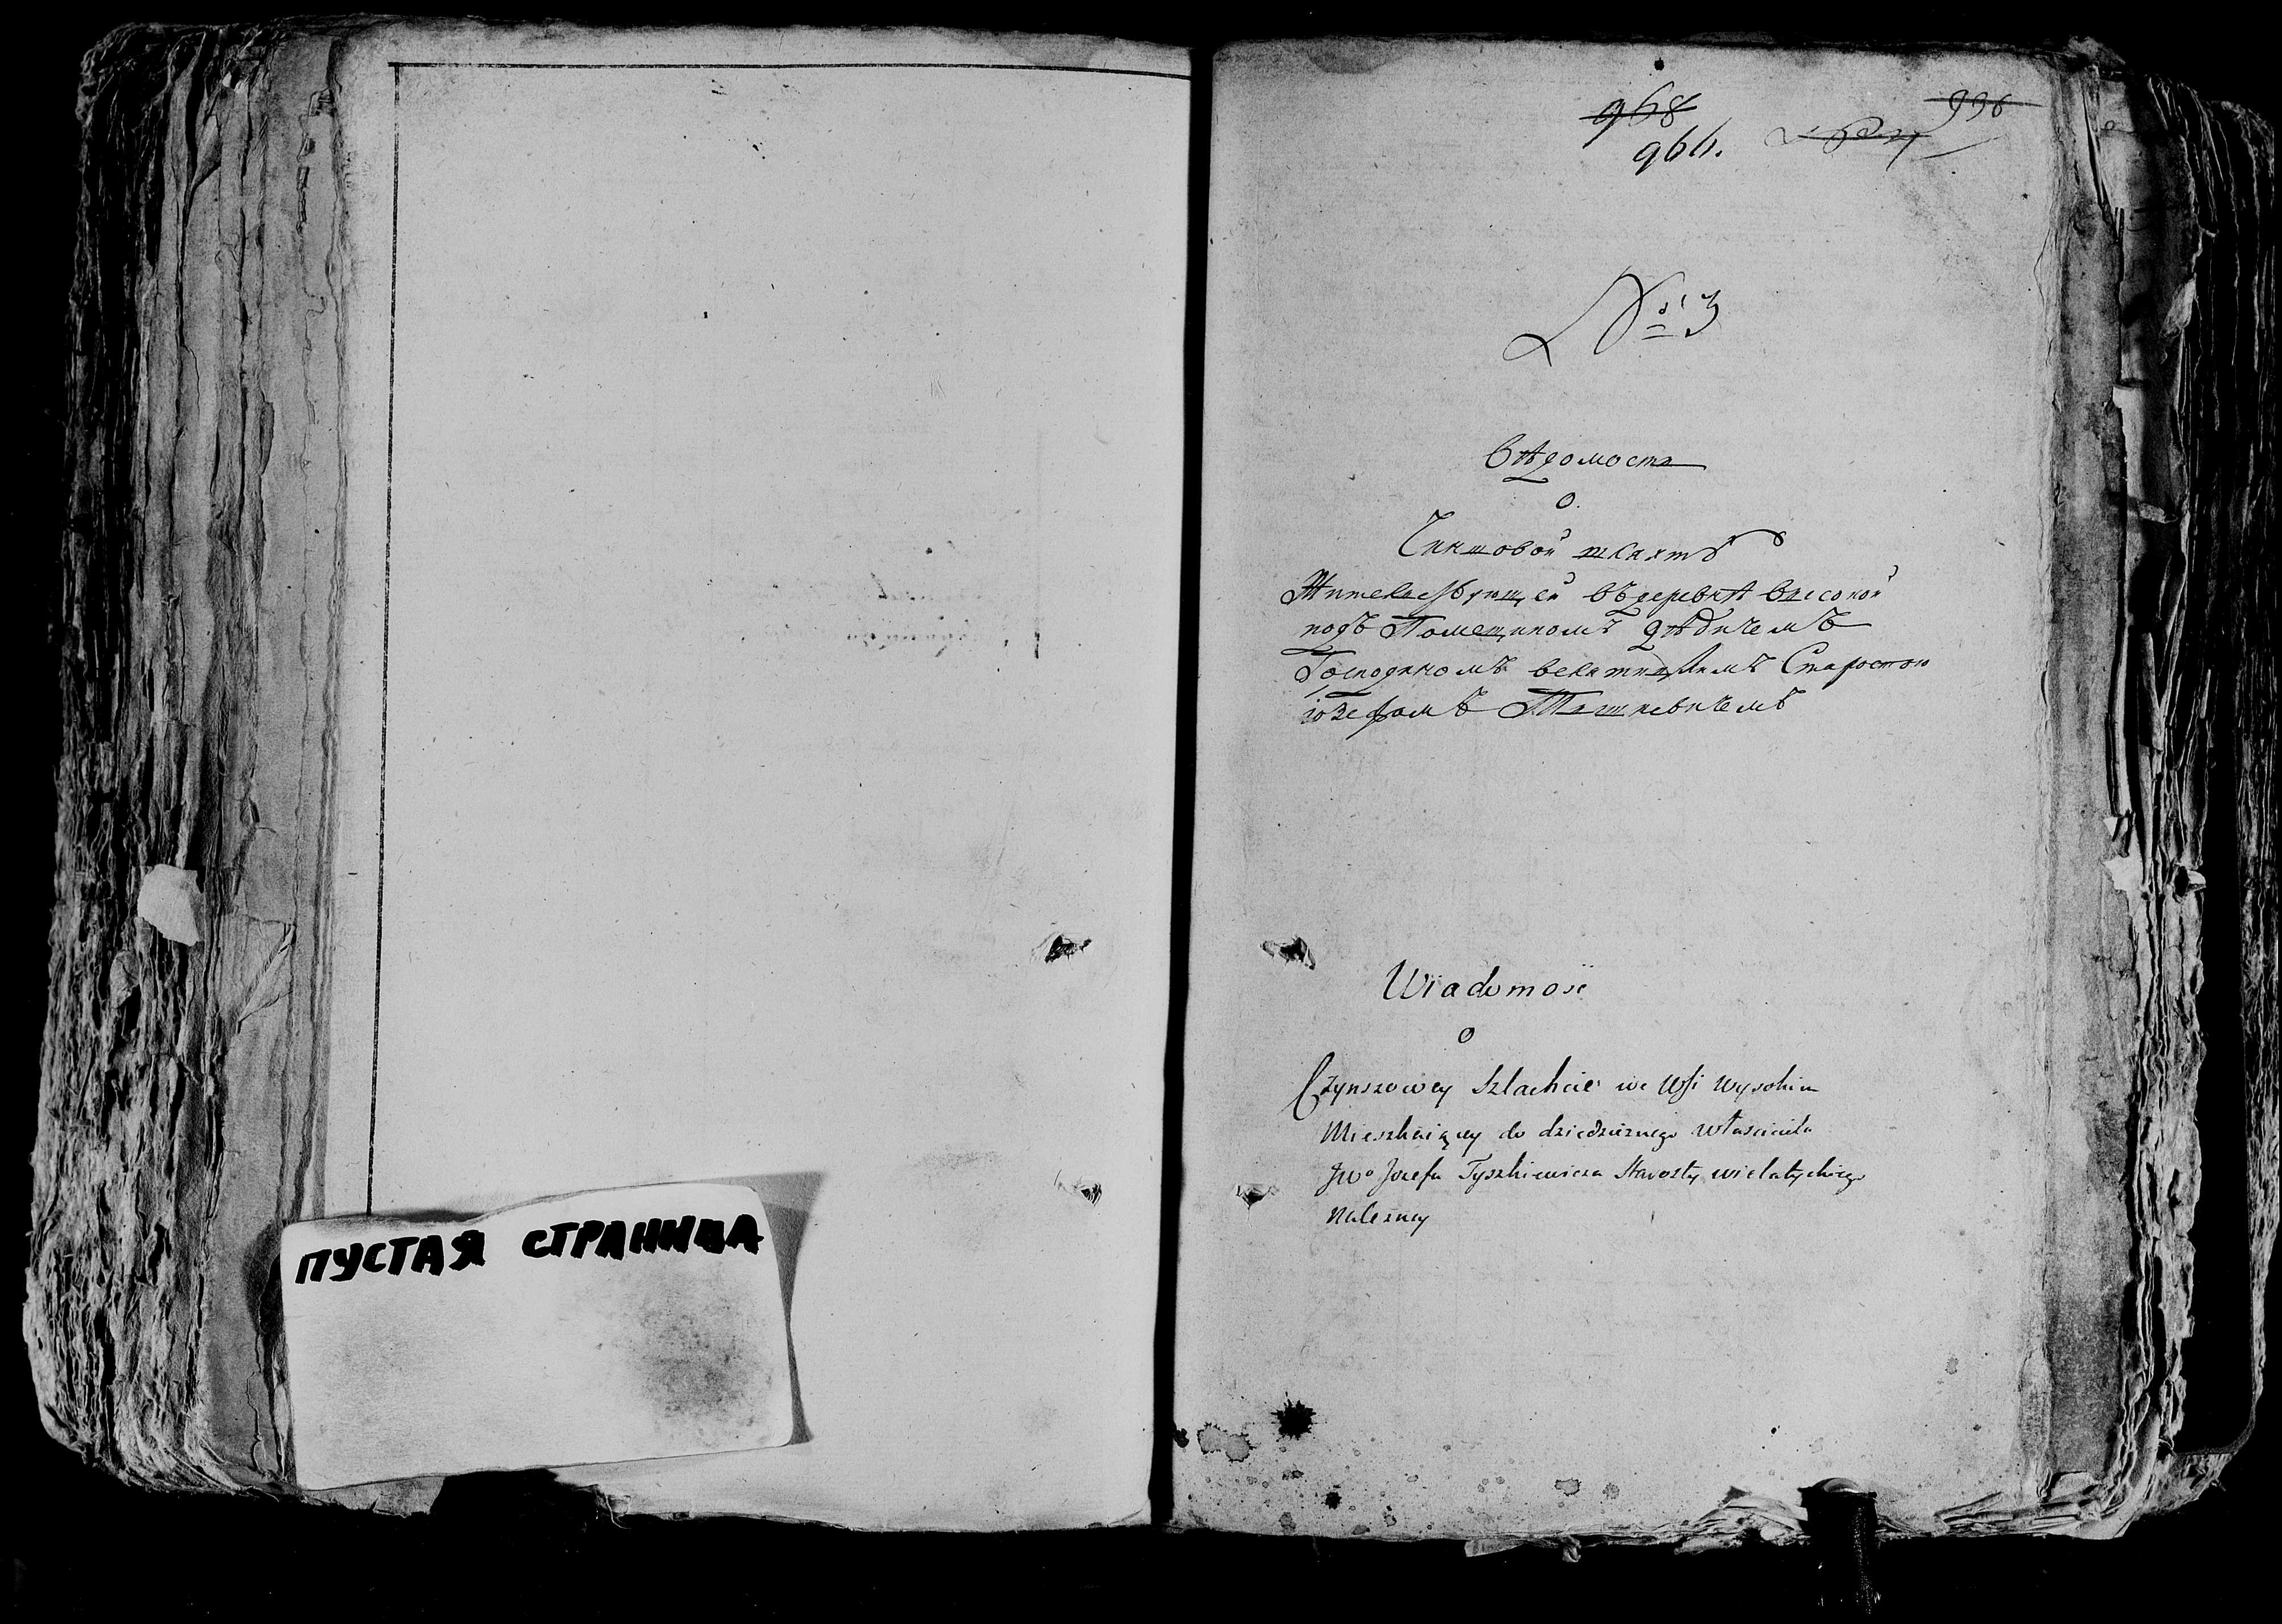 ПУСТАЯ СТРАНИЦА
968
936
966.
№ 3
Вѣдомость
о
Чиншовой шляхтѣ
Жительствующей въ деревнѣ Высокой
подъ Помещикомъ Дѣдичемъ
Господиномъ велятицкимъ Старостою
іозефомъ Тышкевичемъ
Wiadomość
o
Czynszowey Szlachcie we Wsi Wysokim
Mieszkaiącey do dziedzicznego właściciela
JWo Jozefa Tyszkiewicza Starosty wielatyckiego
Należney